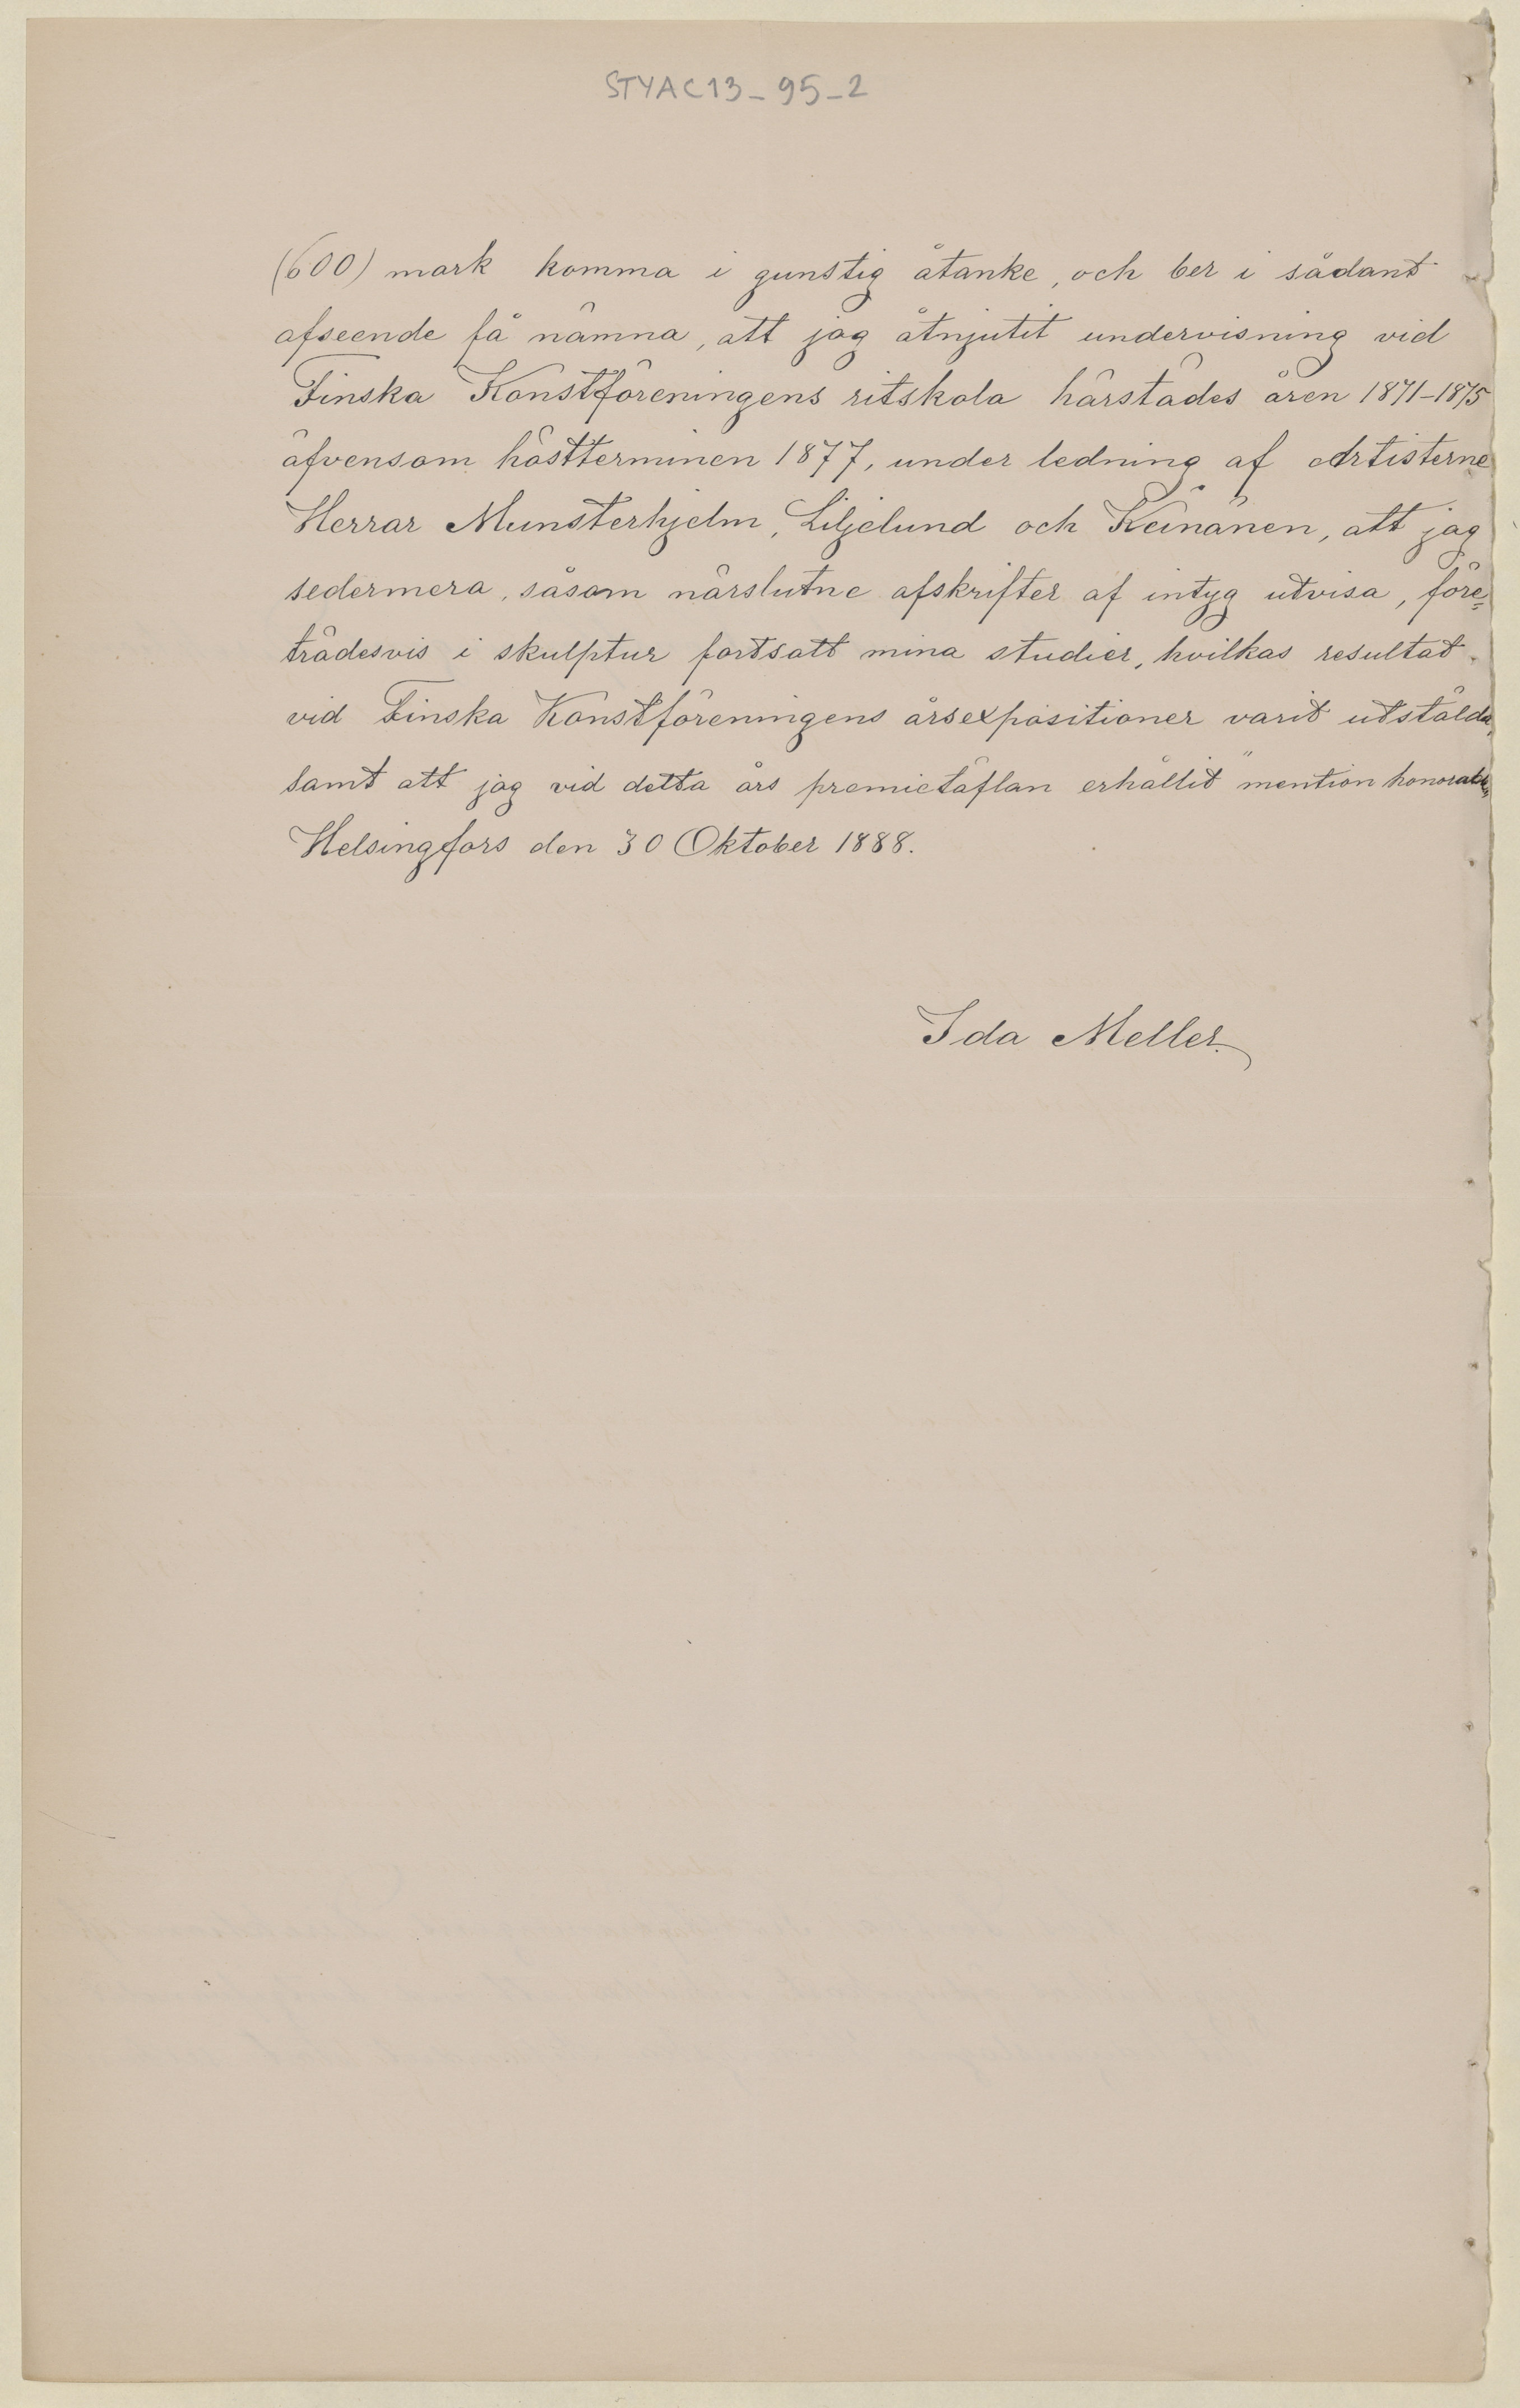 STYAC13_95_2
(600) mark komma i gunstig åtanke, och ber i sådant
afseende få nämna, att jag åtnjutit undervisning vid
Finska Konstföreningens ritskola härstädes åren 1871–1875
äfvensom höstterminen 1877, under ledning af Artisterne
Herrar Munsterhjelm, Liljelund och Keinänen, att jag
sedermera, såsom närslutne afskrifter af intyg utvisa, före=
trädesvis i skulptur fortsatt mina studier, hvilkas resultat
vid Finska Konstföreningens årsexpositioner varit utstälda,
samt att jag vid detta års premietäflan erhållit "mention honorable"
Helsingfors den 30 Oktober 1888.
Ida Meller.